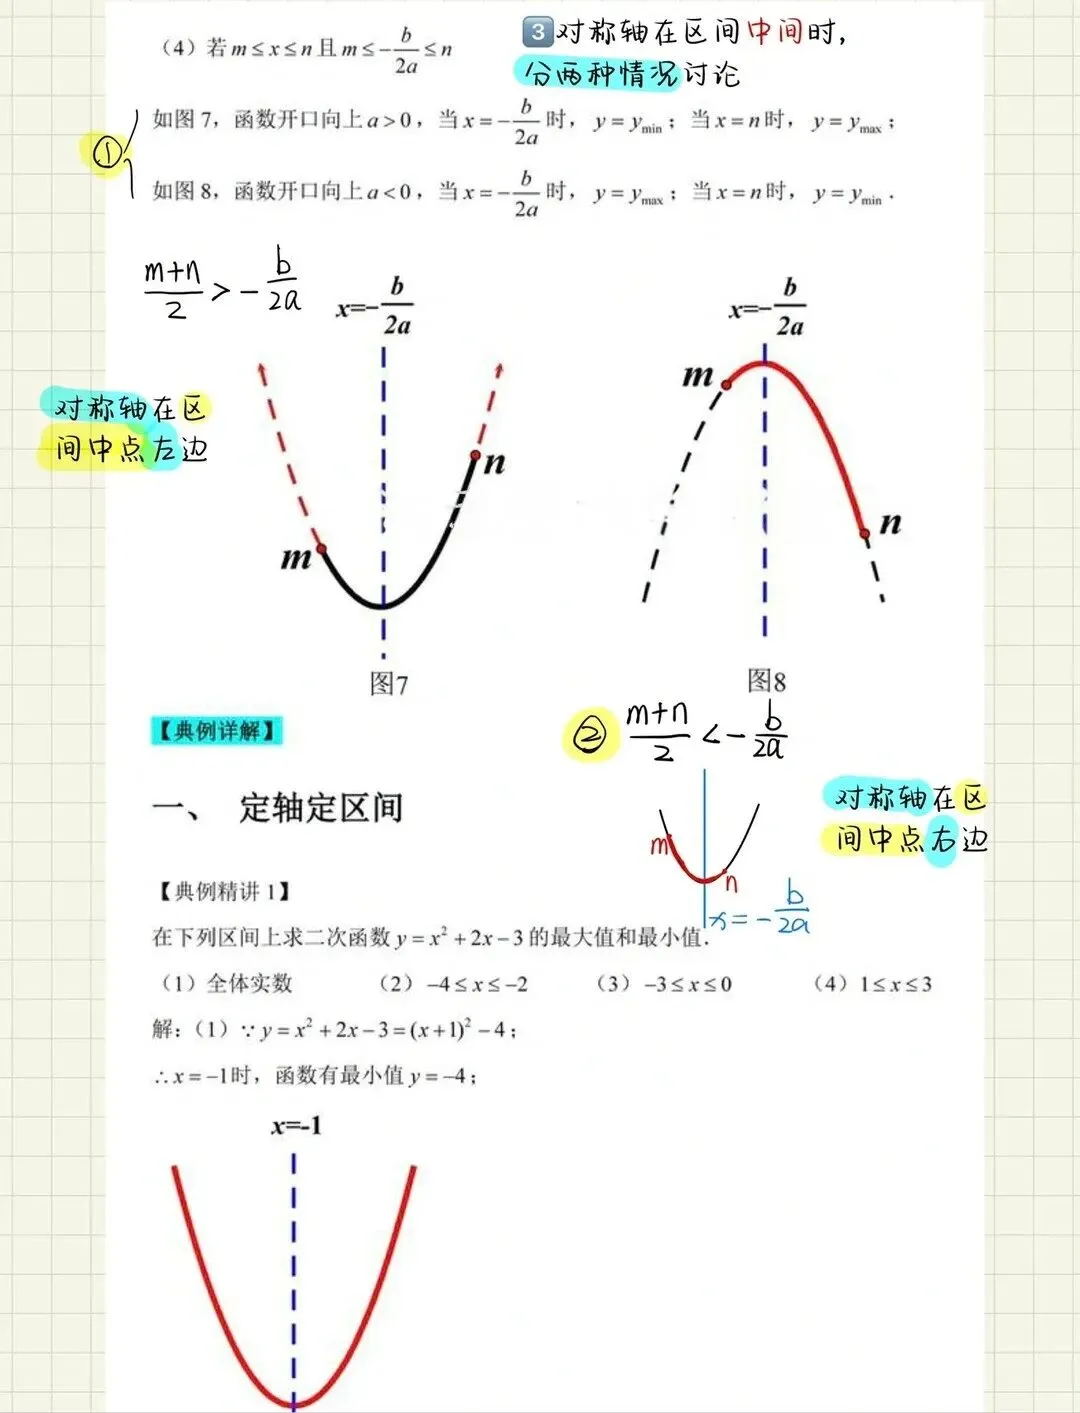 （4）若 m ≤ x ≤ n 且 m ≤ -b/2a ≤ n
3 对称轴在区间中间时,
分两种情况讨论
①
如图 7，函数开口向上 a > 0，当 x = -b/2a 时， y = y_min；当 x = n 时， y = y_max；
如图 8，函数开口向上 a < 0，当 x = -b/2a 时， y = y_max；当 x = n 时， y = y_min．
(m+n)/2 > -b/2a
对称轴在区
间中点左边
x=-b/2a
m
n
图7
x=-b/2a
m
n
图8
【典例详解】
② (m+n)/2 < -b/2a
对称轴在区
间中点右边
m
n
x = -b/2a
一、 定轴定区间
【典例精讲 1】
在下列区间上求二次函数 y = x² + 2x - 3 的最大值和最小值．
（1）全体实数 （2）-4 ≤ x ≤ -2 （3）-3 ≤ x ≤ 0 （4）1 ≤ x ≤ 3
解：（1）∵ y = x² + 2x - 3 = (x + 1)² - 4；
∴ x = -1 时，函数有最小值 y = -4；
x=-1